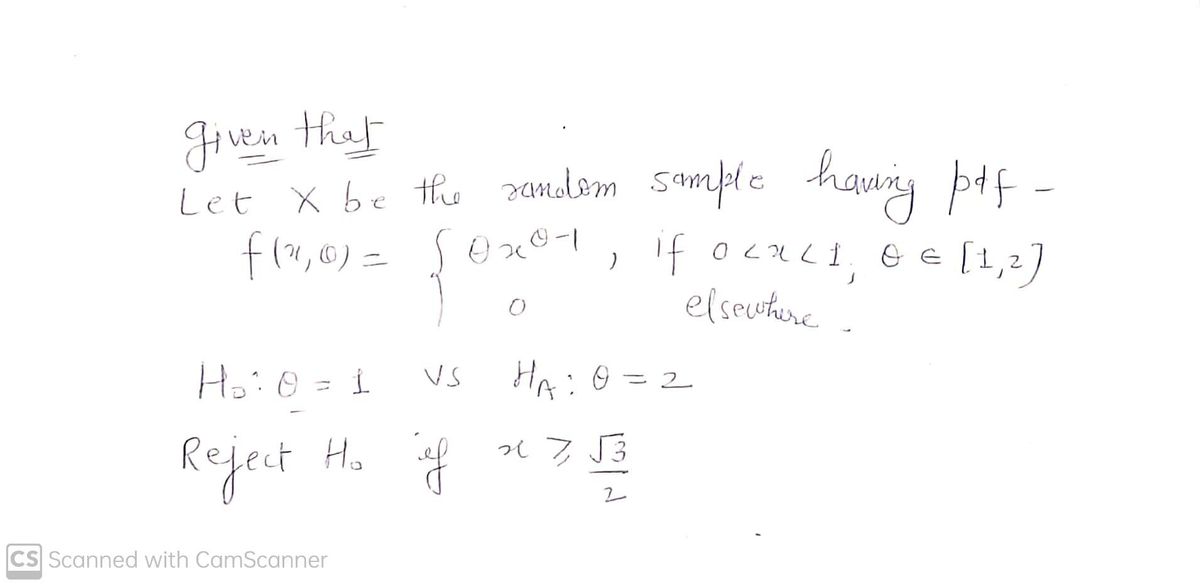 given that
Let X be the random sample having pdf -
f(x,θ) = { θx^θ-1 , if 0<x<1, θ ∈ [1,2]
0 elsewhere .
H₀: θ = 1 vs H_A: θ = 2
Reject H₀ if x ≥ √3/2
CS Scanned with CamScanner